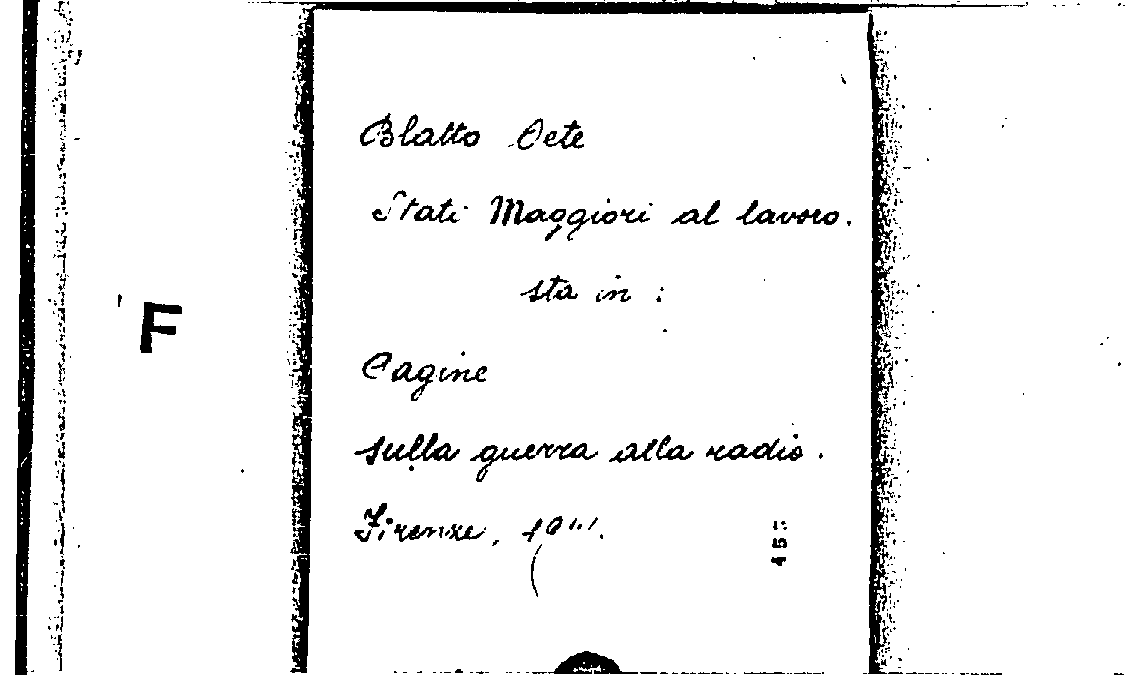 F
Blatto Oete
Stati Maggiori al lavoro.
sta in :
Pagine
sulla guerra alla radio.
Firenze,